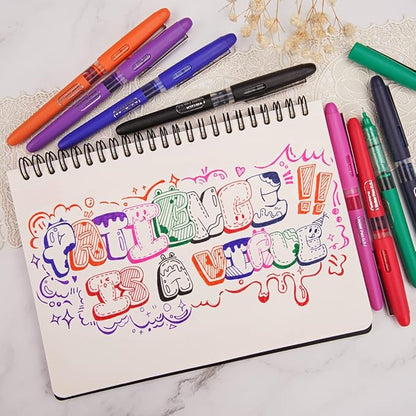 PATIENCE!!
IS A VIRTUE